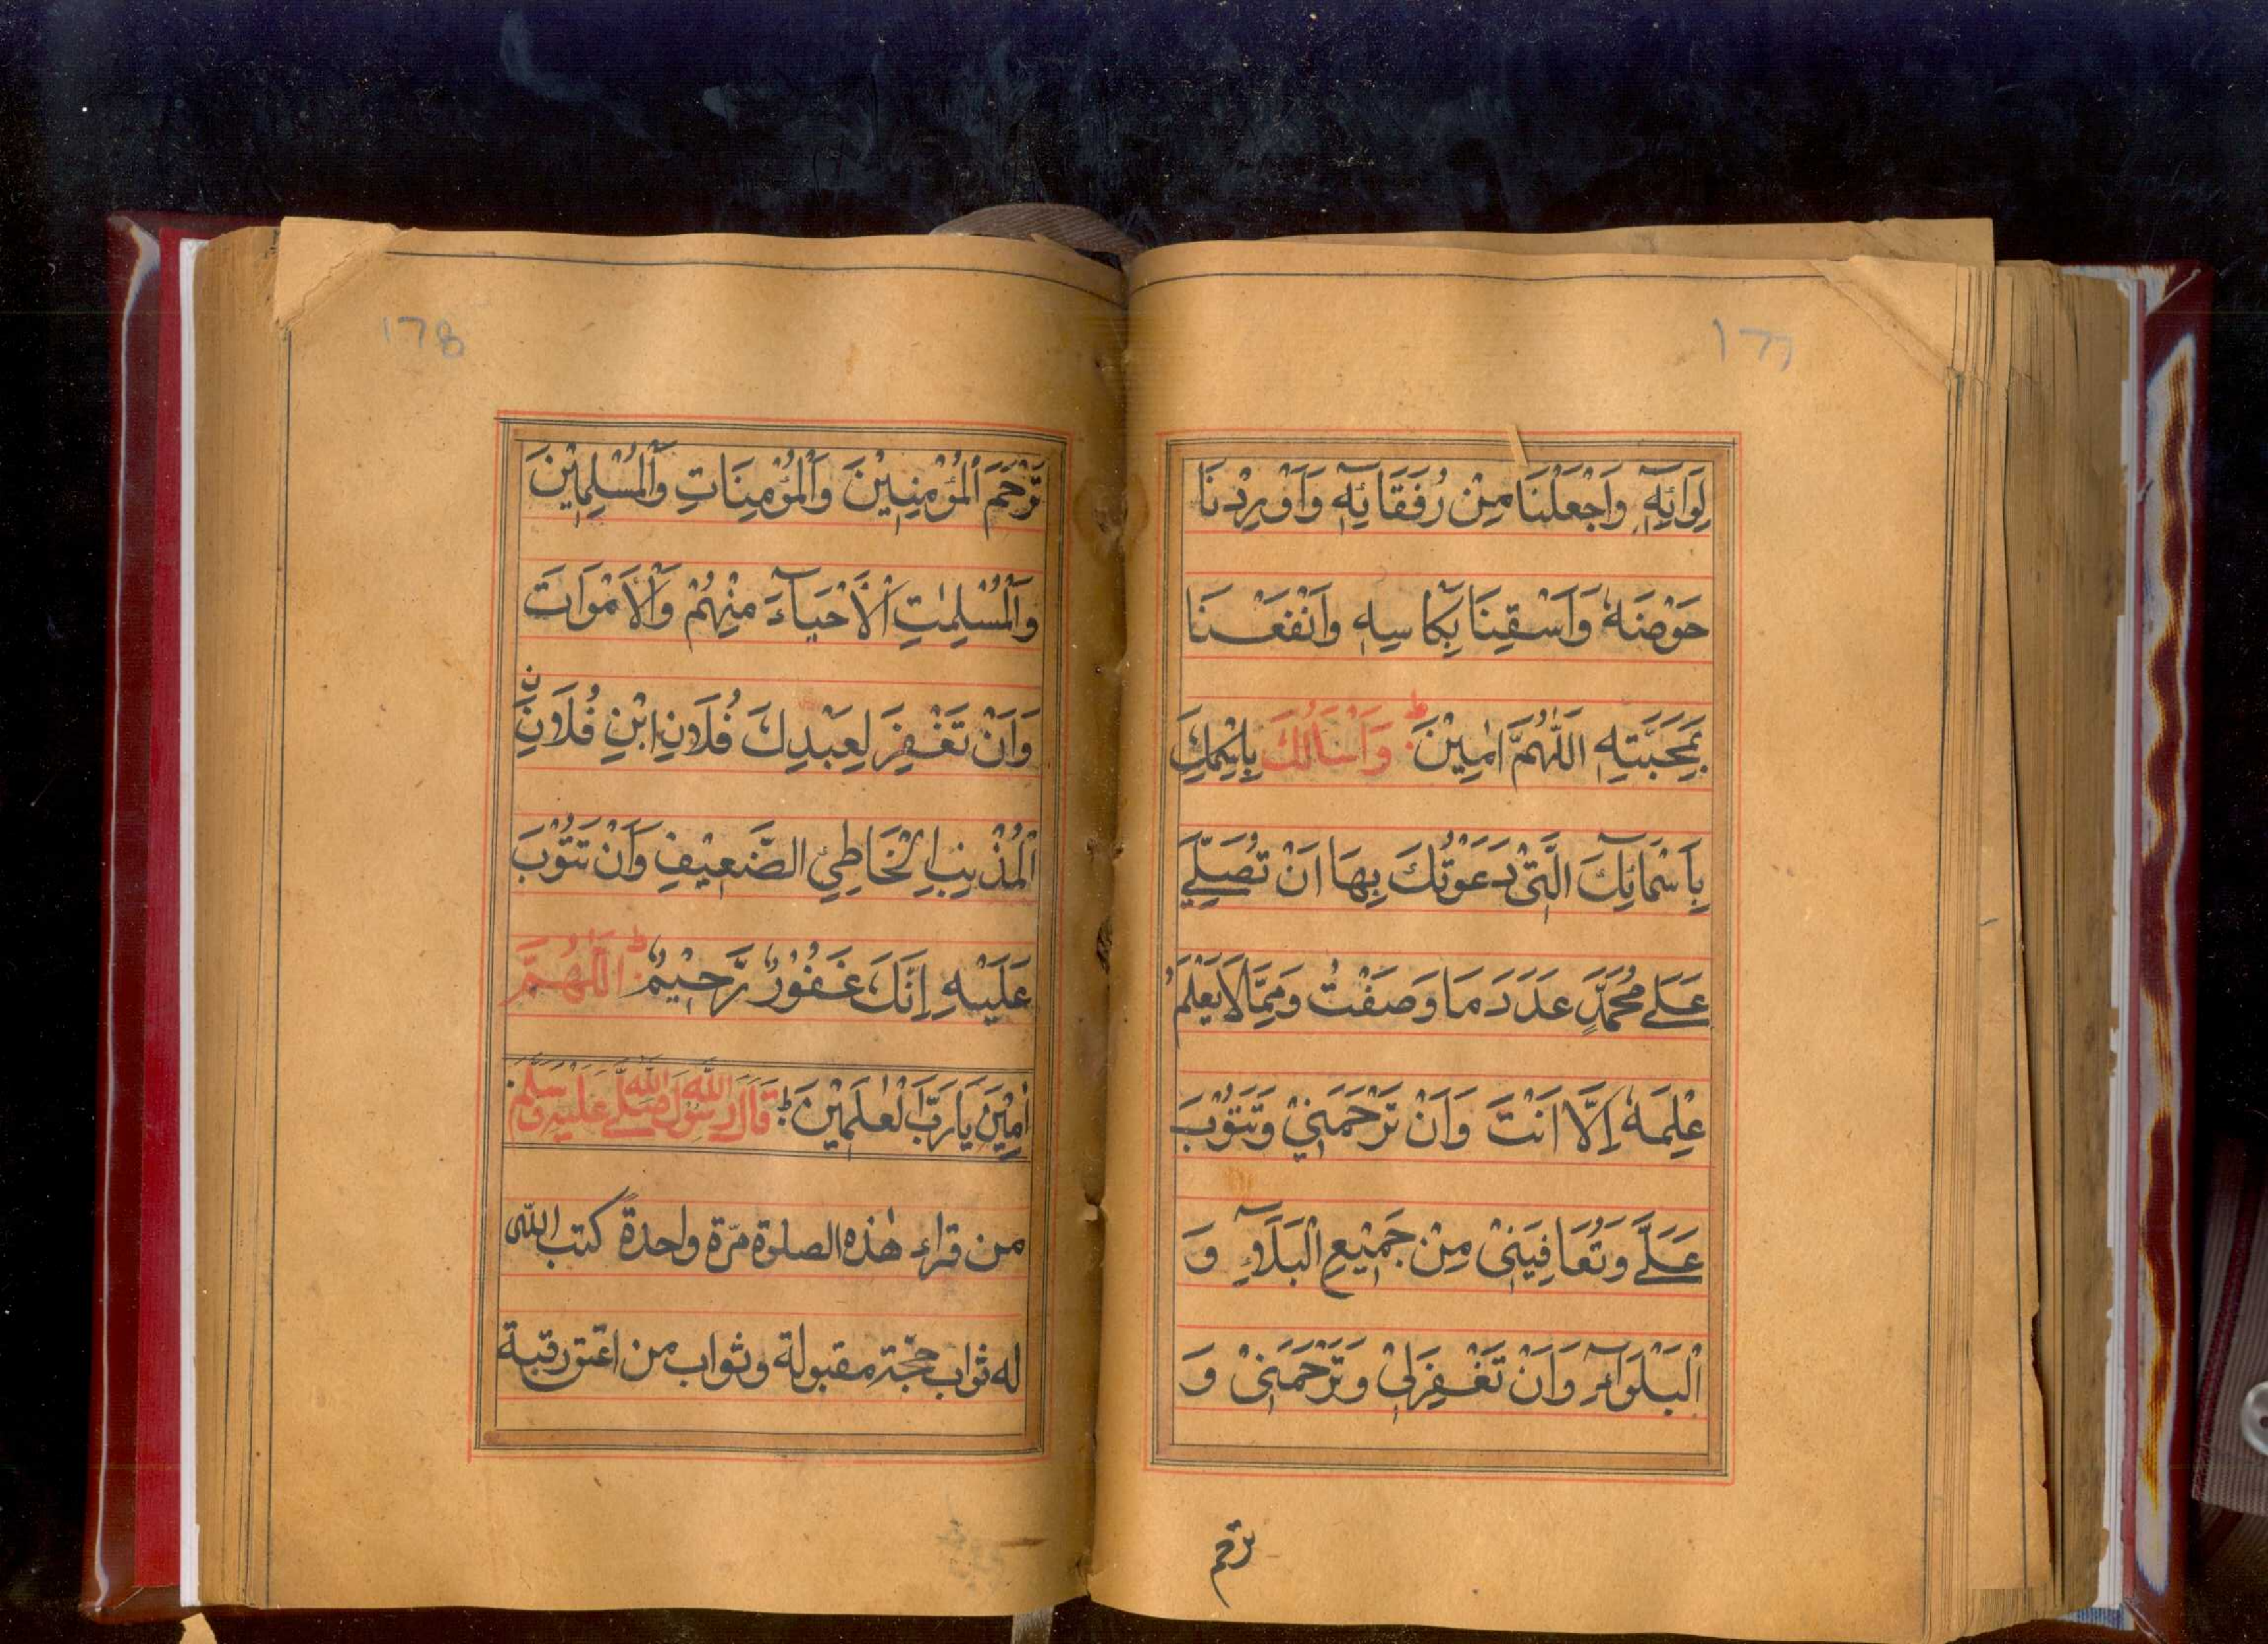 177
لِوَائِهٖ وَاجْعَلْنَا مِنْ رُفَقَائِهٖ وَاَوْرِدْنَا
حَوْضَهٗ وَاَسْقِنَا بِكَاسِهٖ وَانْفَعْنَا
بِمَحَبَّتِهٖ اَللّٰهُمَّ اٰمِيْنَ ط وَاَسْاَلُكَ بِاِسْمِكَ
بِاَسْمَآئِكَ الَّتِيْ دَعَوْتُكَ بِهَا اَنْ تُصَلِّيَ
عَلٰى مُحَمَّدٍ عَدَدَ مَا وَصَفْتُ وَمِمَّا لَا يَعْلَمُ
عِلْمَهٗ اِلَّا اَنْتَ وَاَنْ تَرْحَمَنِيْ وَتَتُوْبَ
عَلَيَّ وَتُعَافِيَنِيْ مِنْ جَمِيْعِ الْبَلَآءِ وَ
الْبَلْوَآءِ وَاَنْ تَغْفِرَلِيْ وَتَرْحَمَنِيْ وَ
ترحم
178
تَرْحَمَ الْمُؤْمِنِيْنَ وَالْمُؤْمِنَاتِ وَالْمُسْلِمِيْنَ
وَالْمُسْلِمٰتِ الْاَحْيَآءَ مِنْهُمْ وَالْاَمْوَاتَ
وَاَنْ تَغْفِرَ لِعَبْدِكَ فُلَانِ ابْنِ فُلَانِ ن
الْمُذْنِبِ الْخَاطِئِ الضَّعِيْفِ وَاَنْ تَتُوْبَ
عَلَيْهِ اِنَّكَ غَفُوْرٌ رَّحِيْمٌ ط اَللّٰهُمَّ
اٰمِيْنَ يَا رَبَّ الْعٰلَمِيْنَ ط قَالَ رَسُوْلُ اللّٰهِ صَلَّى اللّٰهُ عَلَيْهِ وَسَلَّمَ
من قراء هٰذه الصلوة مرّة واحدةً كتب اللّٰه
له ثواب حجّة مقبولة وثواب من اعتق رقبة